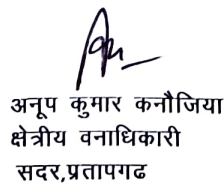 अनूप कुमार कनौजिया
क्षेत्रीय वनाधिकारी
सदर,प्रतापगढ